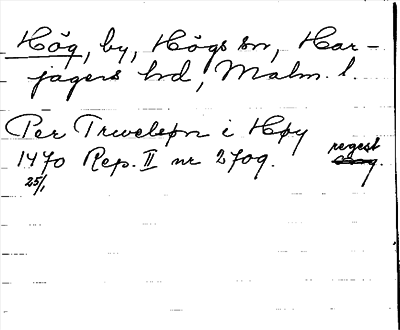 Hög, by, Högs sn, Har-
jagers hd, Malm. l.
Per Trwelsøn i Høy
1470 Rep. II nr 2709. regest
25/1